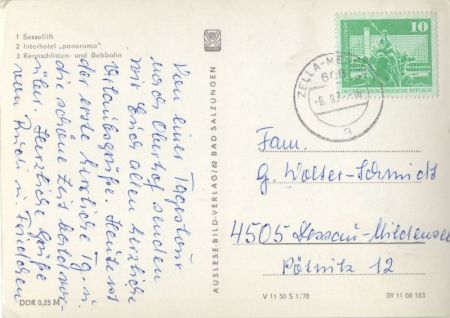 1 Sessellift
2 Interhotel „panorama"
3 Rennschlitten- und Bobbahn
Von einer Tagestour
nach Oberhof senden
wir Euch allen herzliche
Urlaubsgrüße. Heute ist
der erste herrliche Tg. u.
die schöne Zeit bald vor-
über. Herzliche Grüße
von
DDR 0,25 M
AUSLESE-BILD-VERLAG/62 BAD SALZUNGEN
10
DEUTSCHE DEMOKRATISCHE REPUBLIK
ZELLA-ME
Fam.
G. Walter-Schmidt
4505 Dessau-Mildensee
Pötnitz 12
V 11 50 S 1/78
09 11 08 183